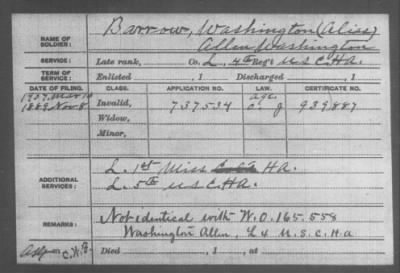 NAME OF SOLDIER: Barrow, Washington (Alias)
Allen Washington
SERVICE: Late rank, Co. L, 4th Reg't U S C. H A.
TERM OF SERVICE: Enlisted , 1 Discharged , 1
DATE OF FILING. CLASS. APPLICATION NO. LAW. CERTIFICATE NO.
1907 Mar 16 Age
1889 Nov 8 Invalid, 737534 C. J 939887
Widow,
Minor,
ADDITIONAL SERVICES: L. 1st Miss H A.
L. 5th U S C. H A.
REMARKS: Not identical with W.O. 165.558
Washington Allen, L 4 U. S. C. H a
C. W. B. Died , 1 , at